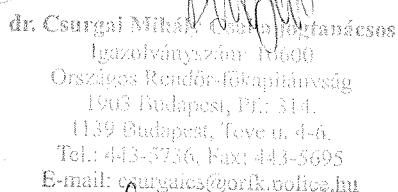 dr. Csurgai Mihály Csaba jogtanácsos
Igazolványszám: 16600
Országos Rendőr-főkapitányság
1903 Budapest, Pf.: 314.
1139 Budapest, Teve u. 4-6.
Tel.: 443-5736, Fax: 443-5695
E-mail: csurgaics@orfk.police.hu